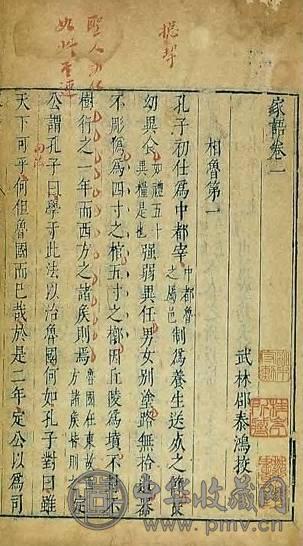 家語卷一
武林郎泰鴻挍
相魯第一
孔子初仕為中都宰中都魯之屬邑制為養生送死之節長
幼異食如禮五十異糧是也强弱異任男女別塗路無拾遺
不彫僞為四寸之棺五寸之椁因丘陵為墳不封不
樹行之一年而西方之諸侯則焉魯國在東故西方諸侯皆則之定
公謂孔子曰學子此法以治魯國何如孔子對曰雖
天下可乎何但魯國而已哉於是二年定公以為司
聖人
如此
中华收藏网
www.pmv.cn